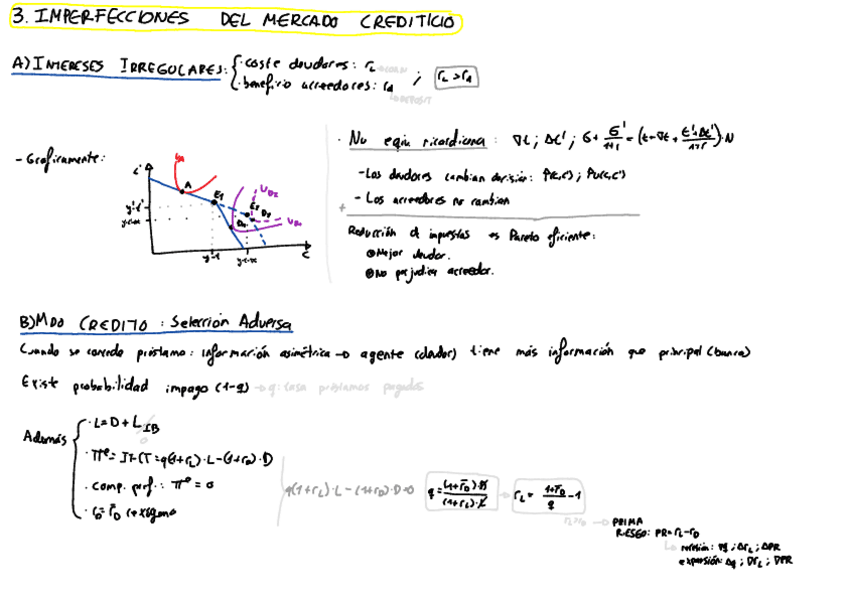 3. IMPERFECCIONES DEL MERCADO CREDITICIO
A) INTERESES IRREGULARES:
· coste deudores: rL
· beneficio acreedores: rd
; rL > rd
- Graficamente:
C'
A
E1
E2
D1
D2
UD2
y-t
C
· No equiv ricardiana:
- Los deudores cambian decisión:
- Los acreedores no cambian
Reducción de impuestos es Pareto eficiente:
Mejor deudor.
No perjudica acreedor.
B) MDO CREDITO: Selección Adversa
Cuando se concede préstamo: información asimétrica → agente (deudor) tiene más información que principal (banco)
Existe probabilidad impago (1-q) → q: tasa préstamos pagados
Además
· L = D + LIB
0
· πe = IT-CT = q(1+rL)·L-(1+rD)·D
· Comp. perf.: πe = 0
q(1+rL)·L-(1+rD)·D=0
q = (1+rD)·D / (1+rL)·L → rL = 1+rD / q - 1
→ PRIMA
RIESGO: PR = rL-rD
recesión: ∇q; ΔrL; ΔPR
expansión: Δq; ∇rL; ∇PR